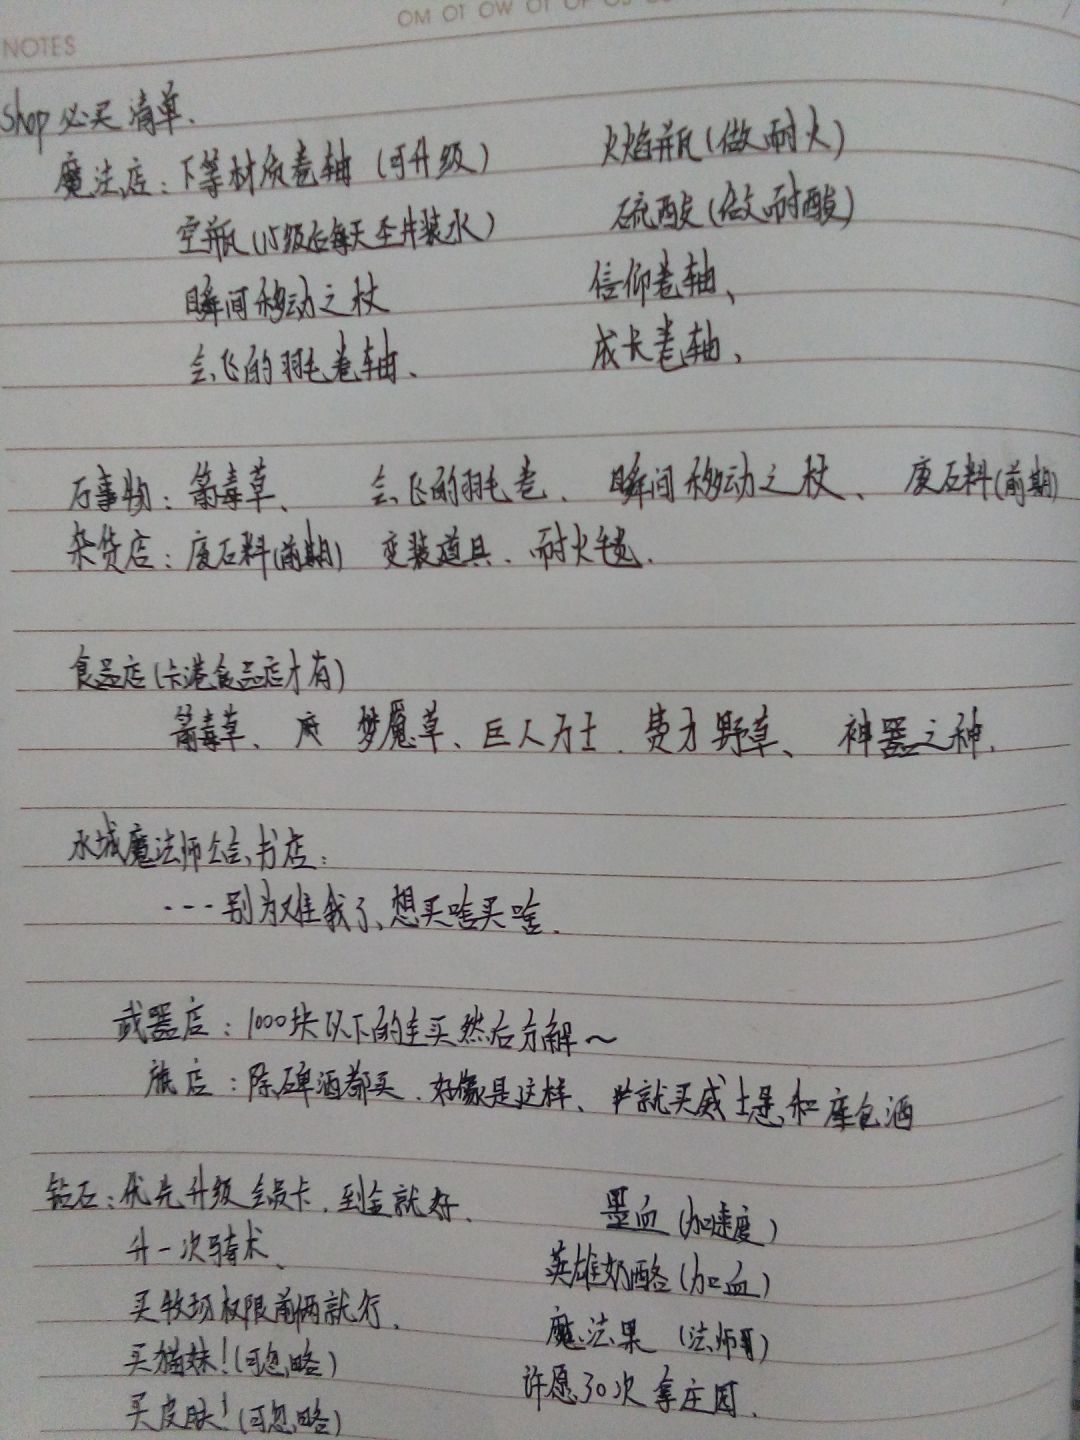 NOTES
shop必买清单.
魔法店：下等材质卷轴（可升级）　火焰瓶（做耐火）
空瓶（15级后每天圣片装水）　硫酸（做耐酸）
瞬间移动之杖　信仰卷轴、
会飞的羽毛卷轴、　成长卷轴、
万事物：箭毒草、　会飞的羽毛卷、　瞬间移动之杖、　废石料（前期）
杂货店：废石料（前期）　变装道具、耐火毯.
食品店（卡港食品店才有）
箭毒草、　梦魇草、巨人力士、费力野草、　神器之种.
水城魔法师公会书店：
---别为难我了、想买啥买啥.
武器店：1000块以下的全买然后分解～
旅店：除碑酒都买、好像是这样、就买威士忌和库包酒
钻石：优先升级会员卡、到金就好.　墨血（加速度）
升一次骑术、　英雄奶酪（加血）
买牧场权限前俩就行.　魔法果（法师哥）
买猫妹！（可忽略）　许愿30次拿庄园.
买皮肤！（可忽略）